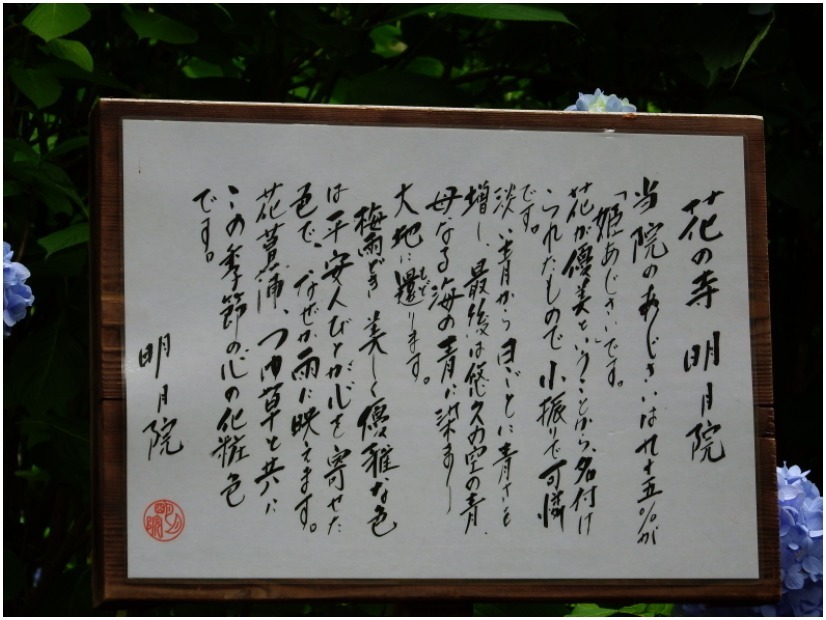 花の寺 明月院
当院のあじさいは九十五%が
「姫あじさい」です。
花が優美ということから、名付け
られたもので小振りで可憐
です。
淡い青から日ごとに青さを
増し、最後は悠久の空の青、
母なる海の青に染まり
大地に還ります。
もど
梅雨どき美しく優雅な色
は平安人びとが心を寄せた
色で、なぜか雨に映えます。
花菖蒲、つゆ草と共に
この季節の心の化粧色
です。
明月院